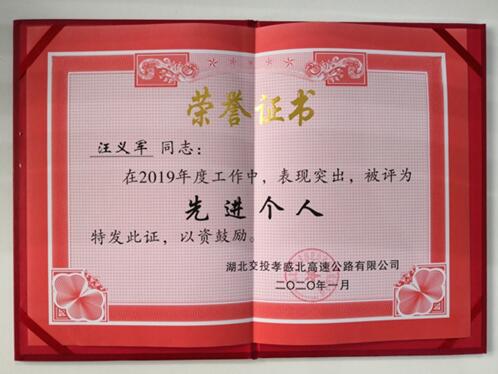 荣誉证书
汪义军 同志：
在2019年度工作中，表现突出，被评为
先进个人
特发此证，以资鼓励。
湖北交投孝感北高速公路有限公司
二〇二〇年一月